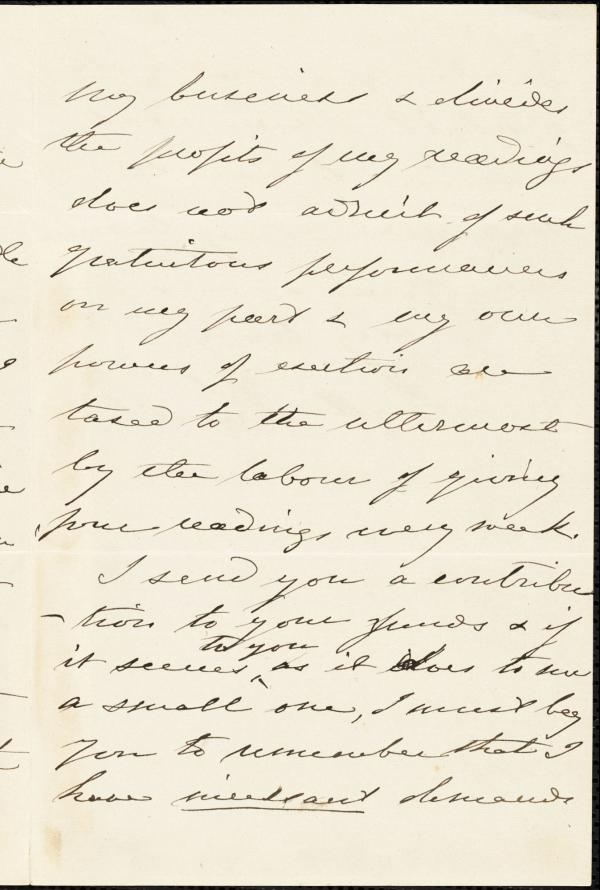 my business & divides
the profits of my readings
does not admit of such
gratuitous performances
on my part & my own
powers of exertion are
taxed to the uttermost
by the labour of giving
four readings every week.
I send you a contribu
-tion to your funds & if
to you
it seems, as it does to me
a small one, I must beg
you to remember that I
have incessant demands